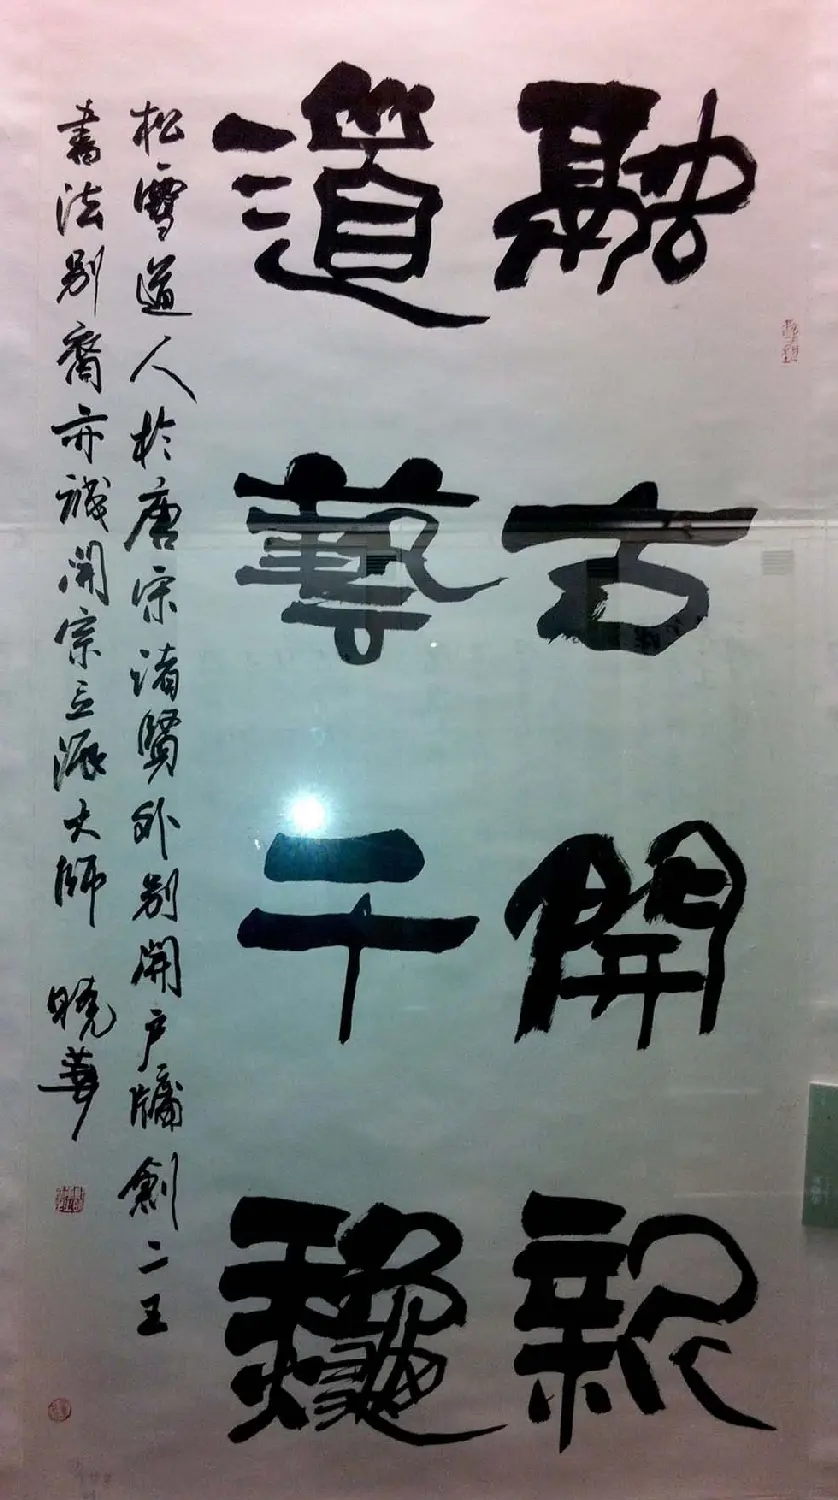 融古開新
道藝千龝
松雪道人於唐宋諸賢外別開戶牖創二王
書法別裔亦誠開宗立派大師 曉華